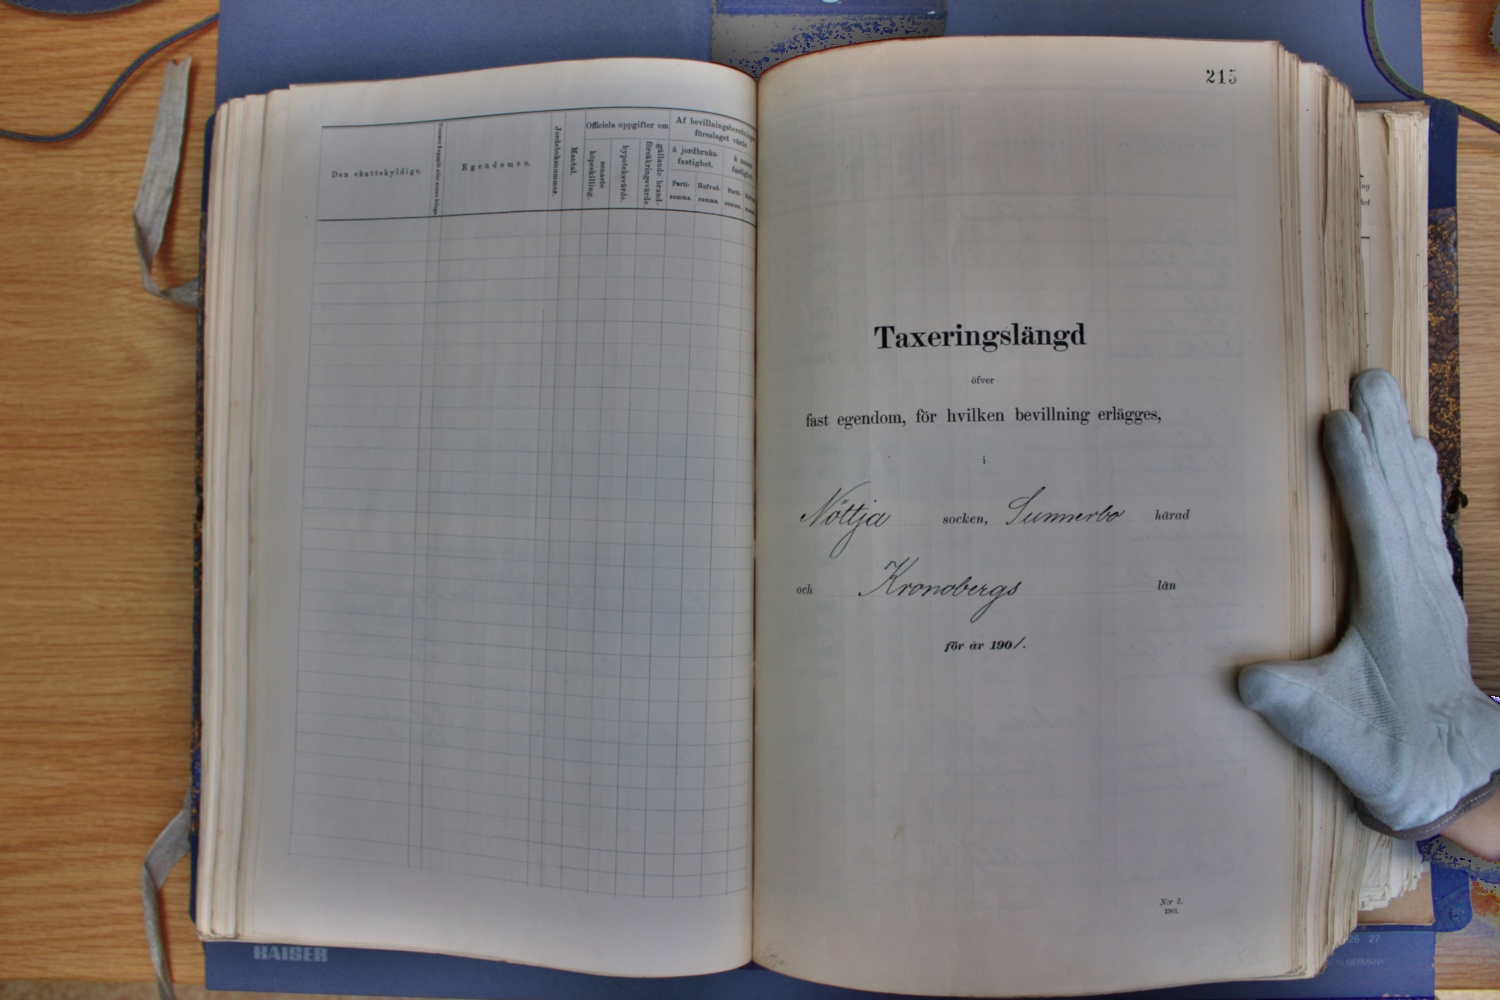 Den skattskyldige.
Egendomen.
Jordeboksnummer.
Mantal.
Officiela uppgifter om
senaste köpeskilling.
hypoteksvärde.
gällande brand-
försäkringsvärde.
Af
föreslaget värde
å jordbruks-
fastighet.
å
Parti-
summa.
Hufvud-
summa.
Parti-
summa.
215
Taxeringslängd
öfver
fast egendom, för hvilken bevillning erlägges,
i
Nöttja socken, Sunnerbo härad
och Kronobergs län
för år 1901.
N:r 1.
1901.
KAISER
26 27
GERMANY